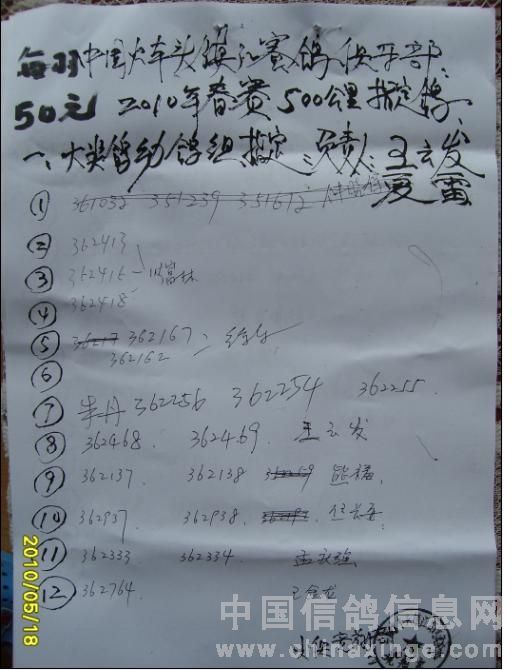 每羽中国火车头镇江赛鸽俱乐部
50元 2010年春赛500公里指定鸽
一、大奖鸽幼鸽组指定:负责人:王云发
夏雷
① 361032 351239 351612
② 362413
③ 362415
④ 362418
⑤ 362167
362162
⑥
⑦ 朱丹 362256 362254 362255
⑧ 362468. 362469. 王云发
⑨ 362137. 362138 熊福
⑩ 362937. 362938.
⑪ 362333 362334 孟
⑫ 362764
2010/05/18
中国信鸽信息网
www.chinaxinge.com